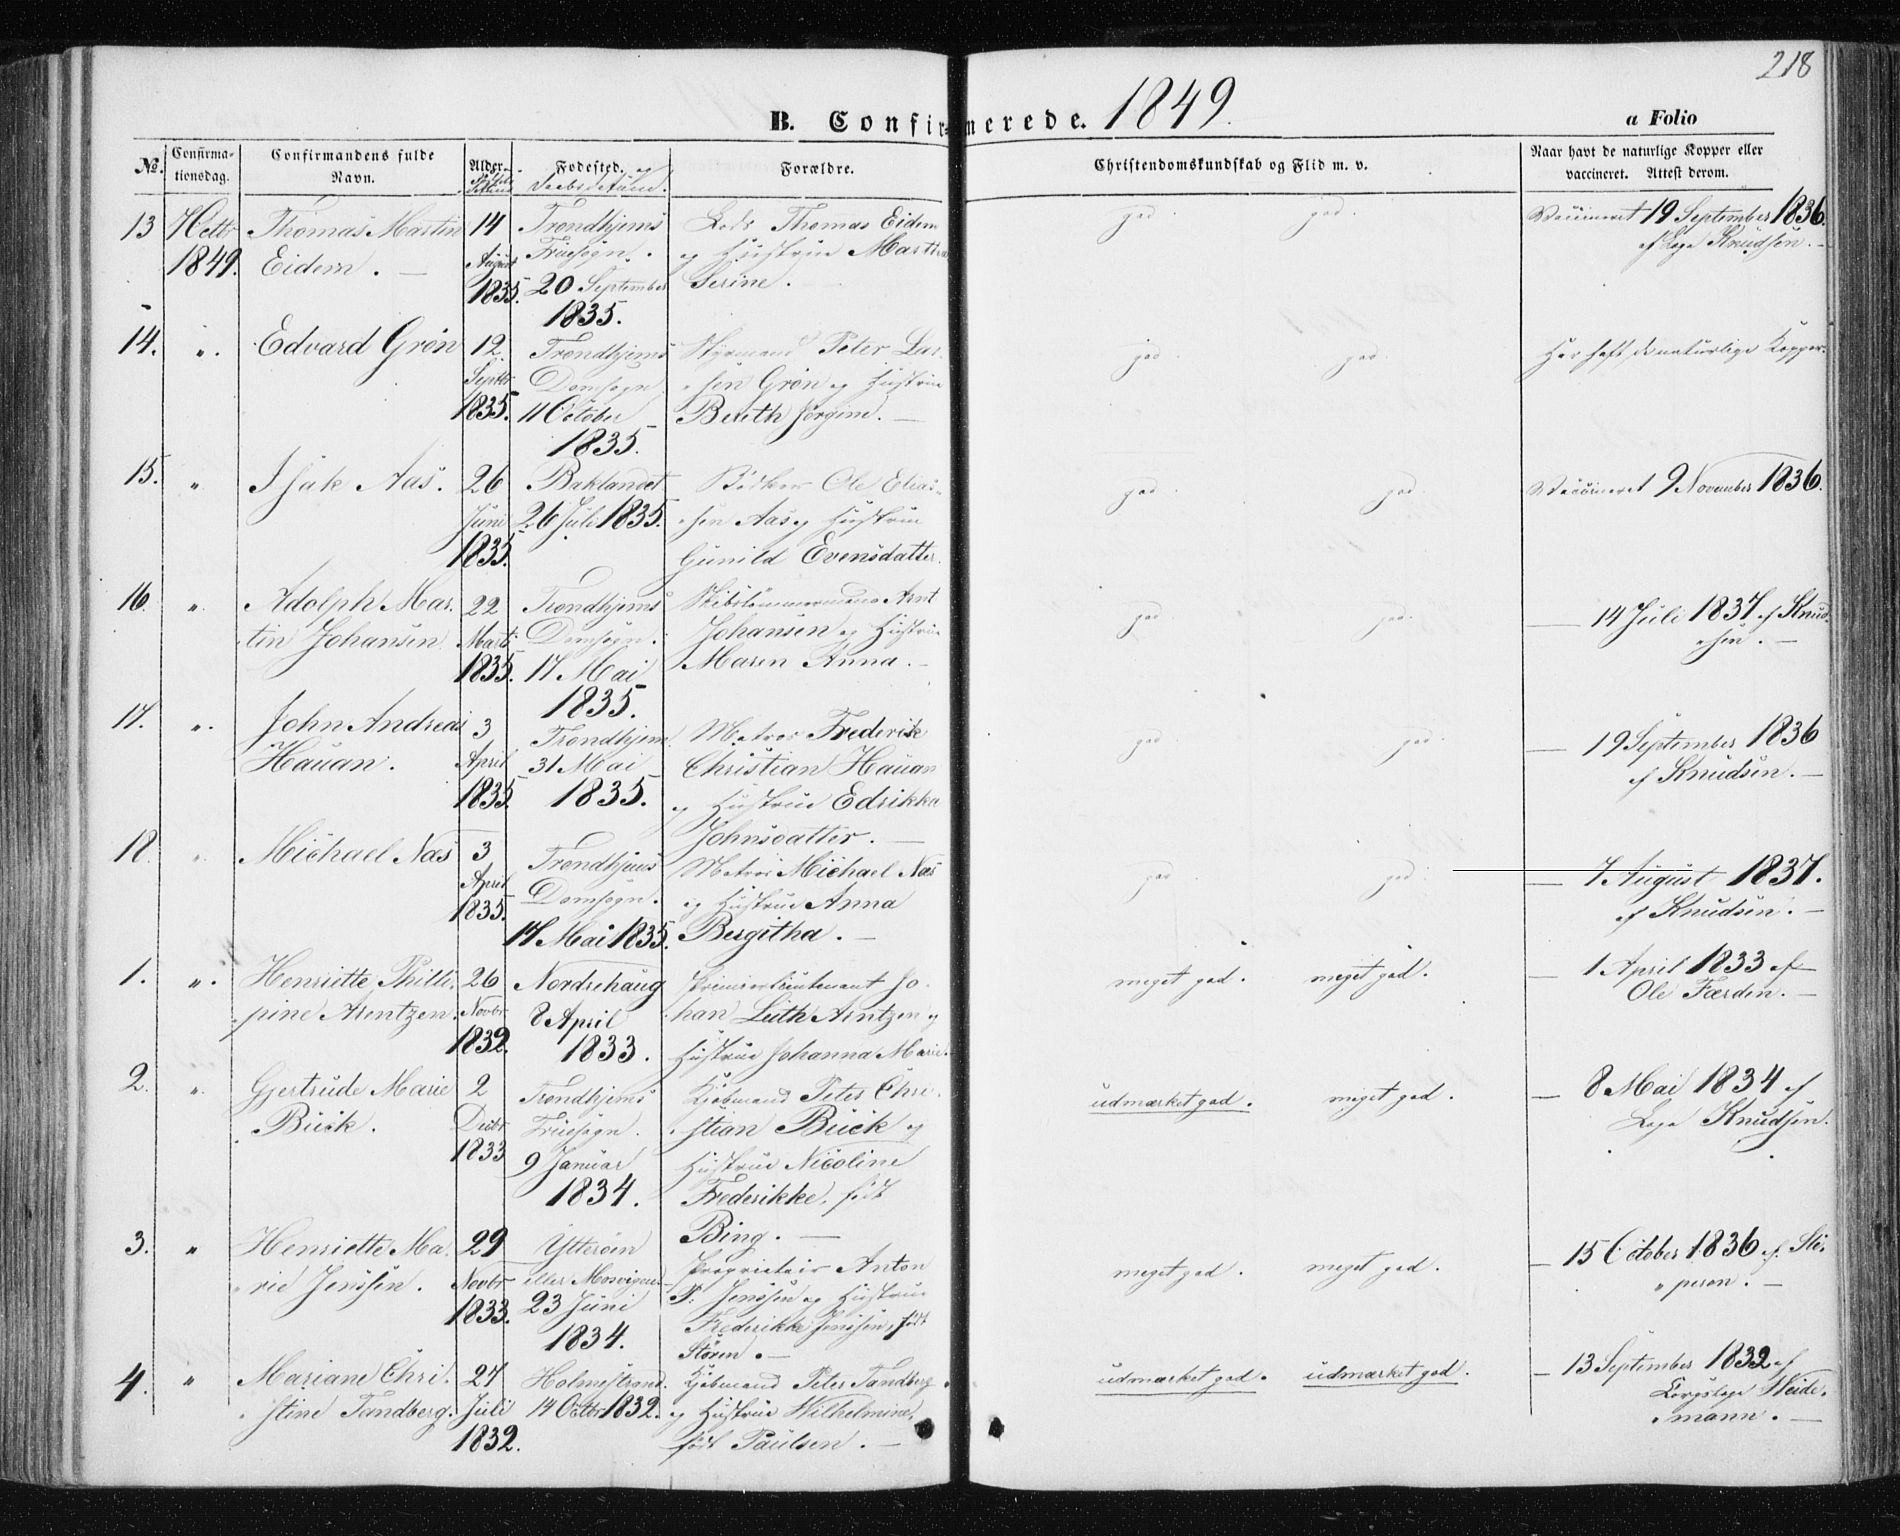 218
B. Confirmerede. 1849.
a Folio
No.
Confirma-
tionsdag.
Confirmandens fulde
Navn.
Alder.
Fødested. og
Daabsdatum.
Forældre.
Christendomskundskab og Flid m. v.
Naar havt de naturlige Kopper eller
vaccineret. Attest derom.
13 Thomas Martin 14 Trondhjems Lods Thomas Eidem god. god. Vaccineret 19 September 1836.
1849. Eidem. August Fruesogn. og Hustrue Martha af Læge Knudsen.
1835. 20 September Serine.
1835.
14. ". Edvard Grøn 12. Trondhjems Styrmand Peter Lar- god. god. Har haft de naturlige Kopper.
Septbr Domsogn sen Grøn og Hustrue
1835. 11 October Bereth Jørgine.
1835.
15. " Isak Aas. 26 Baklandet Bødker Ole Elias- god. god. Vaccineret 9 November 1836.
Juni 26 Juli 1835. sen Aas og Hustrue
1835. Gunild Evensdatter.
16 " Adolph Mar- 22 Trondhjems Skibstømmermand Arnt god. god. — 14 Juli 1837 af Knud-
tin Johansen Marti Domsogn. Johansen og Hustrue sen.
1835. 17 Mai Maren Anna.
1835.
17. ". John Andreas 3 Trondhjem Matros Frederik god. god. — 19 September 1836
Hauan. April 31 Mai Christian Hauan af Knudsen.
1835. 1835. og Hustrue Edrikka
Johnsdatter.
18. " Michael Næs 3 Trondhjems Matros Michael Næs god. god. — 7 August 1837.
April Domsogn. og Hustrue Anna af Knudsen.
1835. 17 Mai 1835. Bergitha.
1. ". Henriette Philli- 26 Nordrehaug Premierlieutenant Jo- meget god. meget god. — 1 April 1833 af
pine Arntzen. Novbr 8 April han Arntzen og Ole Færden.
1832. 1833. Hustrue Johanna Marie.
2. " Gjertrude Marie 2 Trondhjems Kjøbmand Peter Chri- udmærket god. meget god. — 8 Mai 1834 af
Buck. Decbr Fruesogn. stian Buck og Læge Knudsen.
1833 9 Januar Hustrue Nicoline
1834. Frederikke, født
Bing.
3. " Henriette Ma- 29 Ytterøen Proprietair Anton meget god. meget god. — 15 October 1836 af
rie Jenssen. Novbr eller Mosvigen P. Jenssen og Hustrue
1833. 23 Juni Frederikke Jenssen, født
1834. Støren.
4. " Mariane Chri- 27 Holmestrand. Kjøbmand Peter Tandberg udmærket god. udmærket god. — 13 September 1832 af
stine Tandberg. Juli 14 Octbr 1832. og Hustrue Wilhelmine, Corpslæge Weide-
1832. født Paulsen. mann.